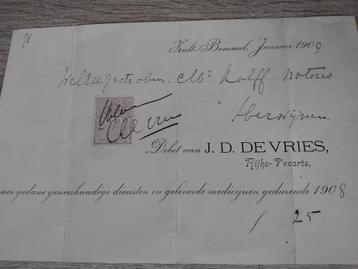 Zalt-Bommel, Januari 1909
WelEdelgestrenge Mr Kolff notaris
Herwijnen
Debet aan J. D. DE VRIES,
Rijks-Veearts,
voor gedane geneeskundige diensten en geleverde medicijnen gedurende 1908
f 25